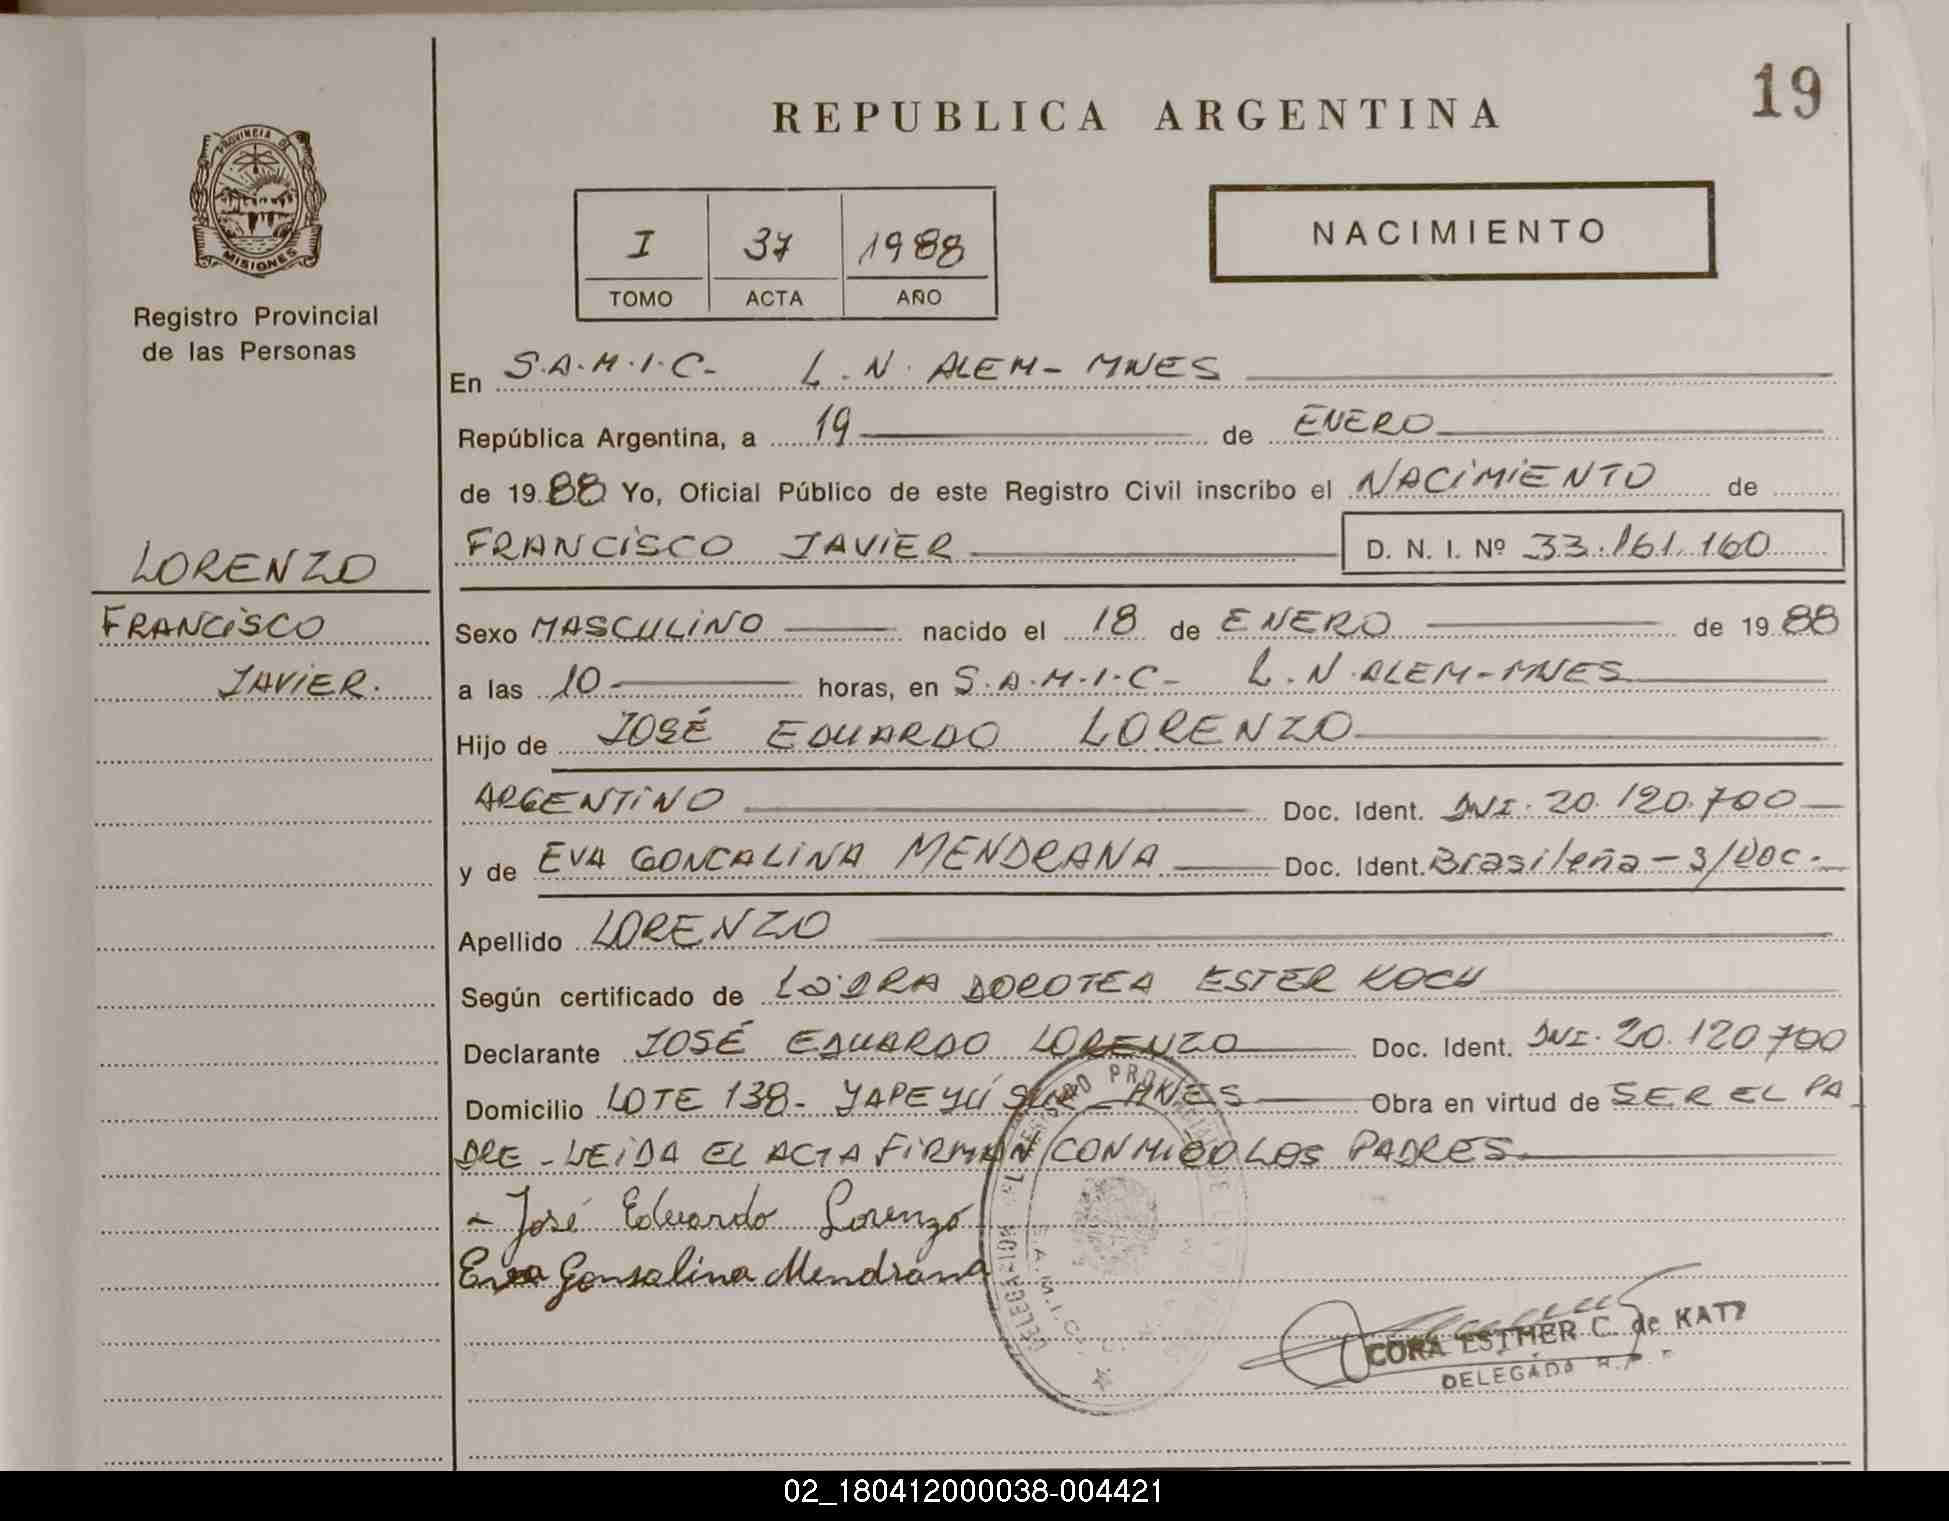 REPUBLICA ARGENTINA
19
PROVINCIA DE
MISIONES
Registro Provincial
de las Personas
I 37 1988
TOMO ACTA AÑO
NACIMIENTO
En S.A.M.I.C- L.N. ALEM- MNES
República Argentina, a 19 de ENERO
de 1988 Yo, Oficial Público de este Registro Civil inscribo el NACIMIENTO de
FRANCISCO JAVIER D. N. I. Nº 33.161.160
LORENZO
FRANCISCO
JAVIER.
Sexo MASCULINO nacido el 18 de ENERO de 1988
a las 10 horas, en S.A.M.I.C- L.N.ALEM-MNES
Hijo de JOSÉ EDUARDO LORENZO
ARGENTINO Doc. Ident. DNI. 20.120.700
y de EVA GONCALINA MENDRANA Doc. Ident. Brasileña - s/Doc.
Apellido LORENZO
Según certificado de DOROTEA ESTER KOCH
Declarante JOSÉ EDUARDO LORENZO Doc. Ident. DNI. 20.120700
Domicilio LOTE 138- YAPEYÚ SUR - MNES Obra en virtud de SER EL PA
DRE - LEIDA EL ACTA FIRMAN CONMIGO LOS PADRES
- José Eduardo Lorenzo
Eva Gonsalina Mendrana
REGISTRO PROVINCIAL DE
DELEGACION
S.A.M.I.C.
CORA ESTHER C. de KATZ
DELEGADA R.P.
02_180412000038-004421